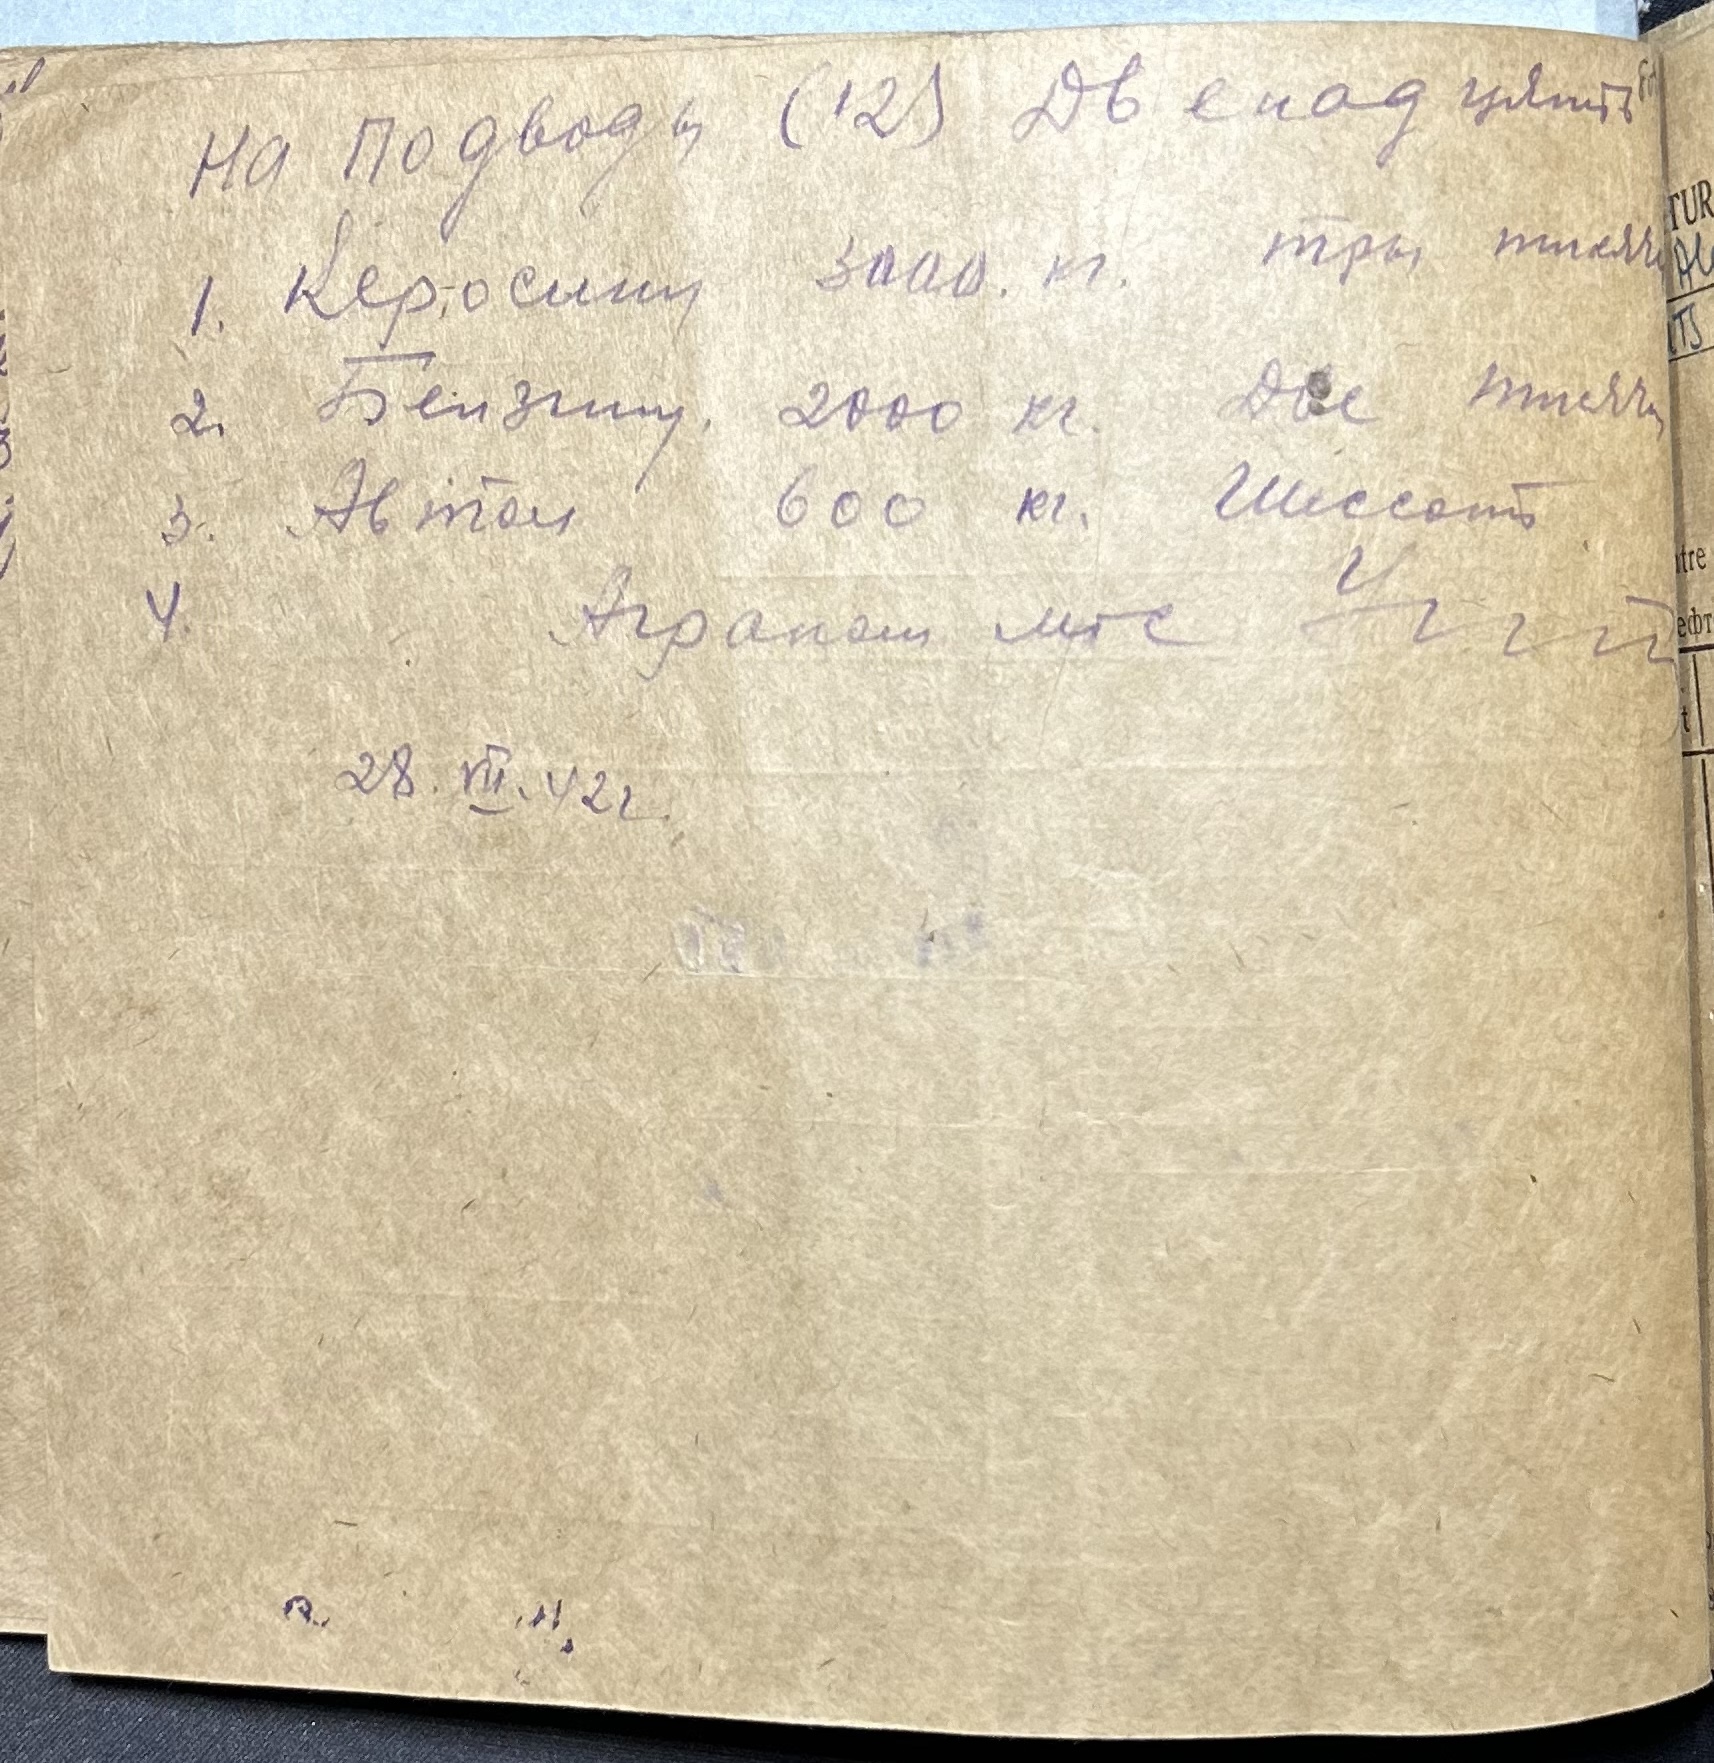 На подводы (12) Двенадцять
1. Керосину 3000. кг. тры тисячи
2. Бензину. 2000 кг. Две тисячи
3. Автол 600 кг. Шессот
4. Агроном мтс
28. VII. 42г.
TUR
ITS
tre
ефт
t